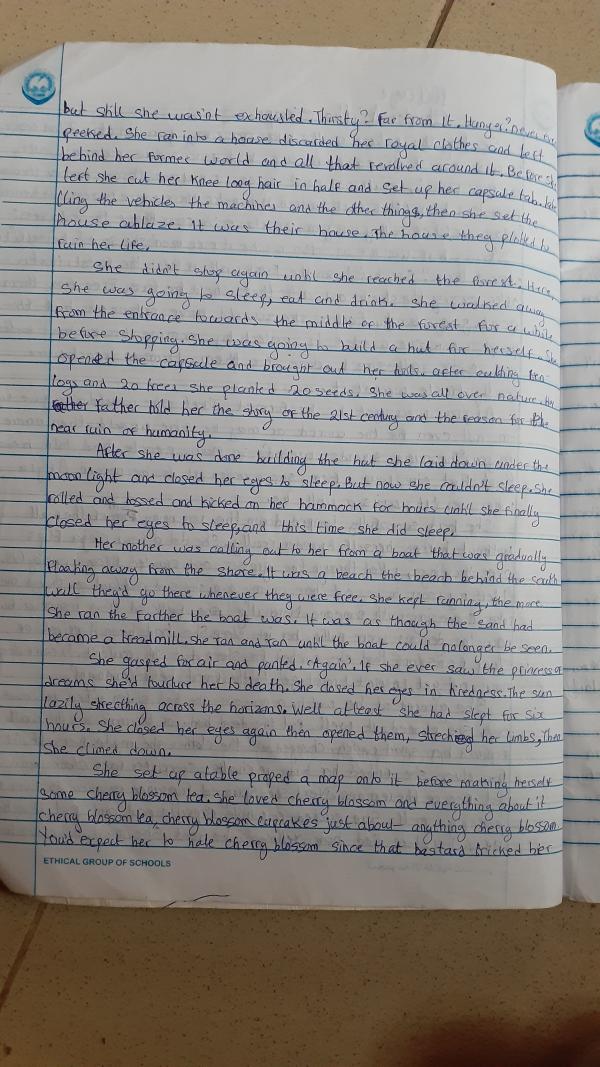 but still she wasn't exhausted. Thirsty? Far from it. Hunger? never
peeked. She ran into a house discarded her royal clothes and left
behind her former world and all that revolved around it. Before she
left she cut her knee long hair in half and set up her capsule tab.
lling the vehicles the machines and the other things, then she set the
house ablaze. It was their house. The house they plotted to
ruin her life.
She didn't stop again until she reached the forest. Here,
she was going to sleep, eat and drink. She walked away
from the entrance towards the middle of the forest for a while
before stopping. She was going to build a hut for herself. She
opened the capsule and brought out her tools. after cutting ten
logs and 20 trees she planted 20 seeds. She was all over nature. her
father told her the story of the 21st century and the reason for the
near ruin of humanity.
After she was done building the hut she laid down under the
moon light and closed her eyes to sleep. But now she couldn't sleep. She
rolled and tossed and kicked on her hammock for hours until she finally
closed her eyes to sleep, and this time she did sleep.
Her mother was calling out to her from a boat that was gradually
floating away from the shore. It was a beach the beach behind the south
wall they'd go there whenever they were free. She kept running, the more
She ran the farther the boat was. It was as though the sand had
became a treadmill. She ran and ran until the boat could nolonger be seen.
She gasped for air and panted. 'Again'. If she ever saw the princess of
dreams she'd tourture her to death. She closed her eyes in tiredness. The sun
lazily strecthing across the horizons. Well atleast she had slept for six
hours. She closed her eyes again then opened them, streching her limbs, Then
she climed down.
She set up atable proped a map onto it before making herself
some cherry blossom tea. She loved cherry blossom and everything about it
cherry blossom tea, cherry blossom cupcakes just about anything cherry blossom
You'd expect her to hate cherry blossom since that bastard tricked her
ETHICAL GROUP OF SCHOOLS